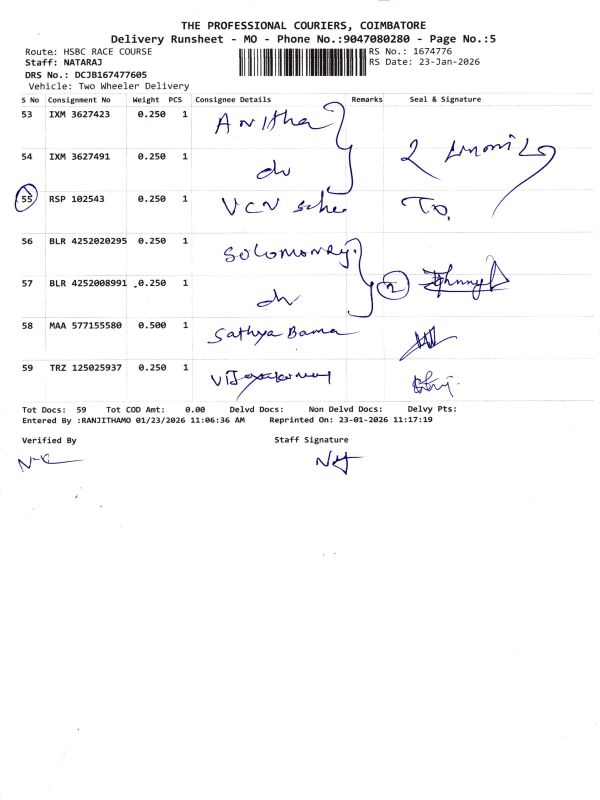 THE PROFESSIONAL COURIERS, COIMBATORE
Delivery Runsheet - MO - Phone No.:9047080280 - Page No.:5
Route: HSBC RACE COURSE RS No.: 1674776
Staff: NATARAJ RS Date: 23-Jan-2026
DRS No.: DCJB167477605
Vehicle: Two Wheeler Delivery
S No Consignment No Weight PCS Consignee Details Remarks Seal & Signature
53 IXM 3627423 0.250 1 Anitha
54 IXM 3627491 0.250 1 do 2
55 RSP 102543 0.250 1 VCV
56 BLR 4252020295 0.250 1
57 BLR 4252008991 0.250 1 do 2
58 MAA 577155580 0.500 1 Sathya Bama
59 TRZ 125025937 0.250 1
Tot Docs: 59 Tot COD Amt: 0.00 Delvd Docs: Non Delvd Docs: Delvy Pts:
Entered By :RANJITHAMO 01/23/2026 11:06:36 AM Reprinted On: 23-01-2026 11:17:19
Verified By Staff Signature